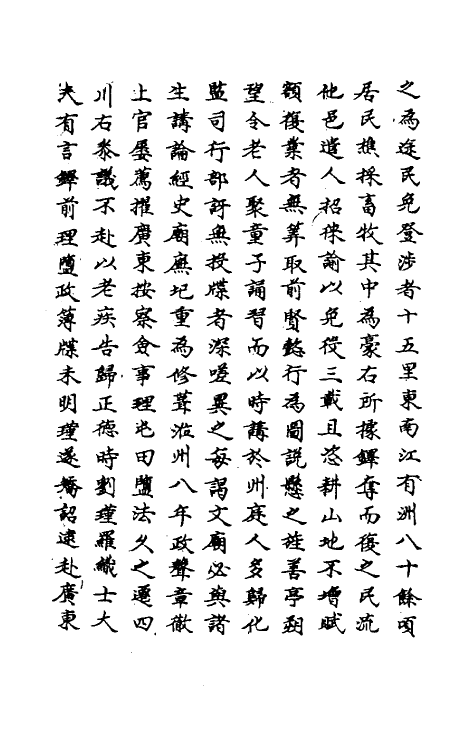 之為途民免登涉者十五里東南江有洲八十餘頃
居民樵採畜牧其中為豪右所據鐸奪而復之民流
他邑遣人招徠諭以免役三載且恣耕山地不增賦
額復業者無筭取前賢懿行為圖説懸之旌善亭朔
望令老人聚童子誦習而以時講於州庭人多歸化
監司行部訝無投牒者深嗟異之每謁文廟必與諸
生講論經史廟廡圮重為修葺涖州八年政聲章徹
上官屢薦擢廣東按察僉事理屯田鹽法久之遷四
川右叅議不赴以老疾告歸正德時劉瑾羅織士大
夫有言鐸前理鹽政薄牒未明瑾遂矯詔逮赴廣東